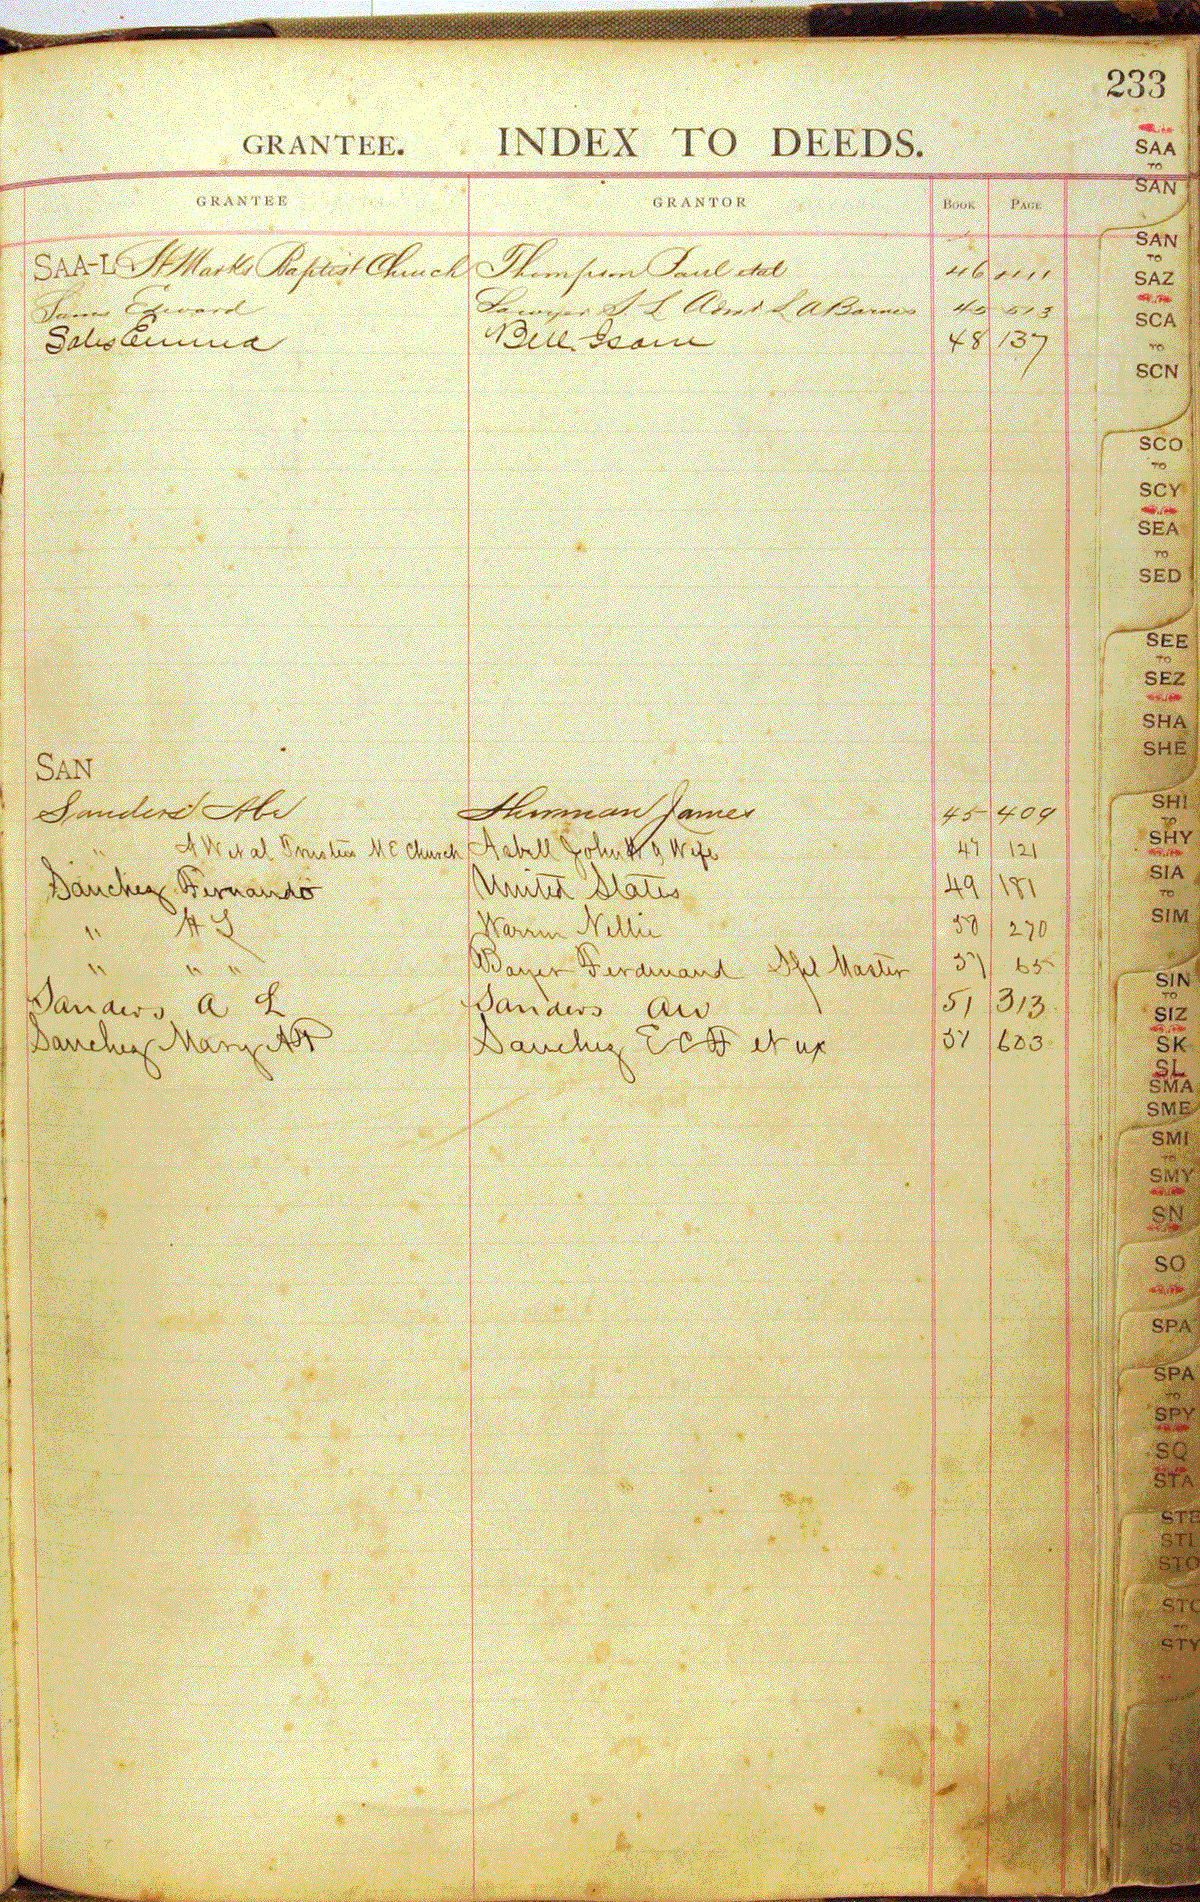 233
GRANTEE. INDEX TO DEEDS.
GRANTEE GRANTOR BOOK PAGE
SAA-L St Marks Baptist Church Thompson Paul et al 46
Edward Sawyer S L Admr L A Barnes 45 513
Sales Emma Bell Isom 48 137
SAN
Sanders Abe Sherman James 45 409
" A W et al Trustees M E Church John & Wife 47 121
Sanchez Fernando United States 49 181
" H S Warren Nellie 50 270
" " " Bayer Ferdinand Spl Master 51 65
Sanders A L Sanders AW 51 313
Sanchez Mary Sanchez E C F et ux 51 603
SAA
TO
SAN
SAN
TO
SAZ
SCA
TO
SCN
SCO
TO
SCY
SEA
TO
SED
SEE
TO
SEZ
SHA
SHE
SHI
TO
SHY
SIA
TO
SIM
SIN
TO
SIZ
SK
SL
SMA
SME
SMI
TO
SMY
SN
SO
SPA
SPA
TO
SPY
SQ
STA
STE
STI
STO
STO
STY